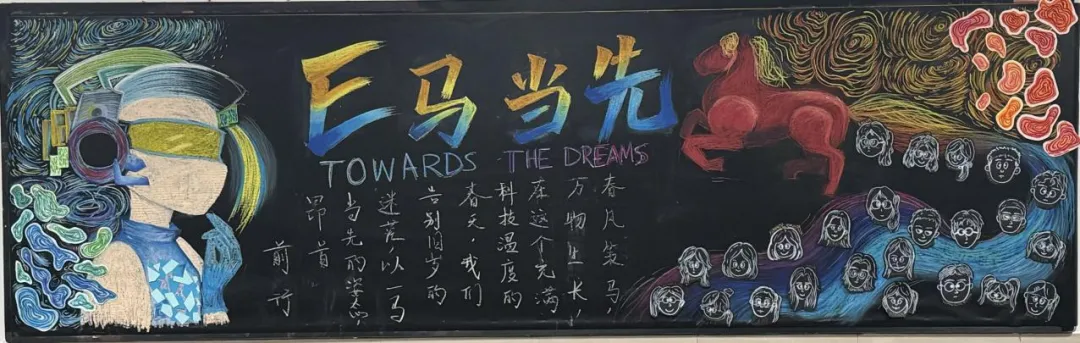 E马当先
TOWARDS THE DREAMS
春风策马，
万物生长，
在这个充满
科技温度的
春天，我们
告别旧岁的
迷茫以一马
当先的姿态，
昂首
前行